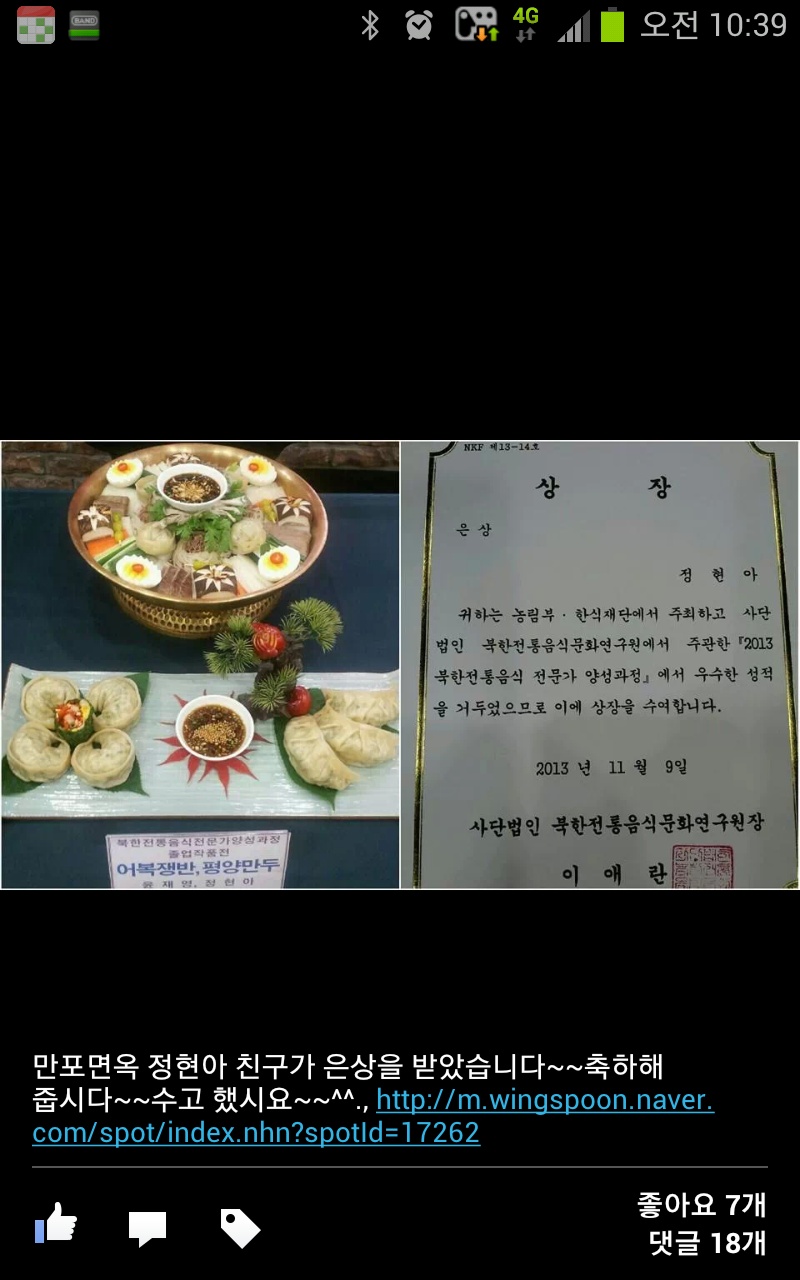 BAND
4G
오전 10:39
북한전통음식전문가양성과정
졸업작품전
어복쟁반, 평양만두
윤재영, 정현아
NKF 제13-14호
상 장
은 상
정 현 아
귀하는 농림부 · 한식재단에서 주최하고 사단
법인 북한전통음식문화연구원에서 주관한 『2013
북한전통음식 전문가 양성과정』에서 우수한 성적
을 거두었으므로 이에 상장을 수여합니다.
2013 년 11 월 9일
사단법인 북한전통음식문화연구원장
이 애 란
만포면옥 정현아 친구가 은상을 받았습니다~~축하해
줍시다~~수고 했시요~~^^., http://m.wingspoon.naver.
com/spot/index.nhn?spotId=17262
좋아요 7개
댓글 18개